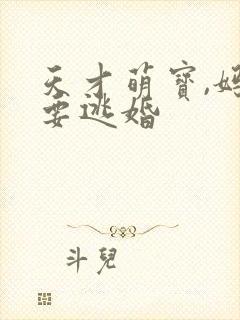 天才萌寶,妈
要逃婚
斗兒